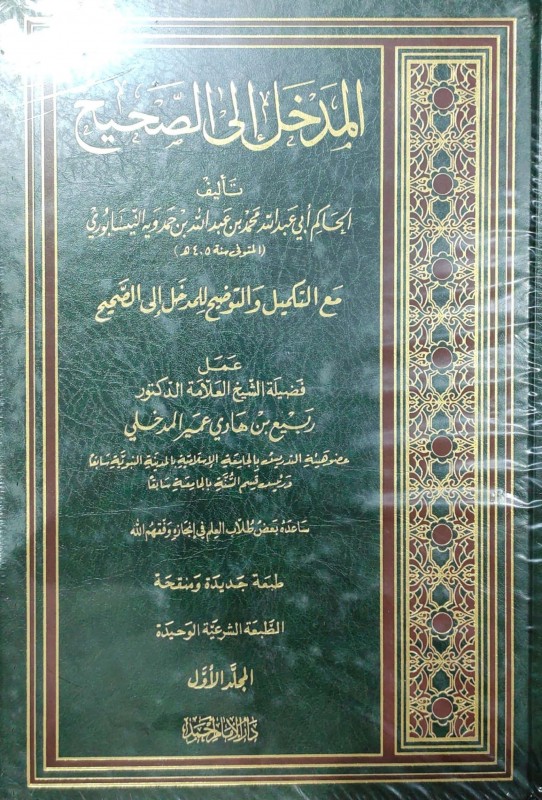 المدخل إلى الصحيح
تأليف
الحاكم أبي عبد الله محمد بن عبد الله بن حمدويه النيسابوري
(المتوفى سنة ٤٠٥ هـ)
مع التكميل والتوضيح للمدخل إلى الصحيح
عمل
فضيلة الشيخ العلامة الدكتور
ربيع بن هادي عمير المدخلي
عضو هيئة التدريس بالجامعة الإسلامية بالمدينة النبوية سابقا
ورئيس قسم السنة بالجامعة سابقا
ساعده بعض طلاب العلم في إنجازه وفقهم الله
طبعة جديدة ومنقحة
الطبعة الشرعية الوحيدة
المجلد الأول
دار الإمام أحمد